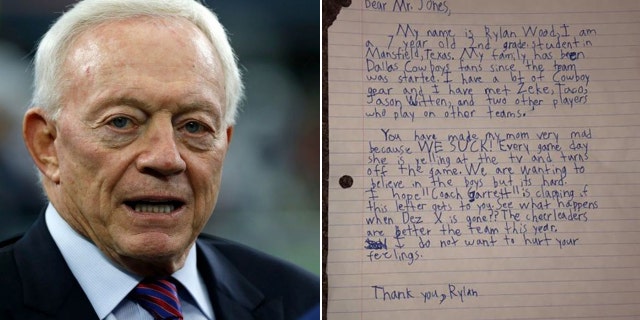 Dear Mr. Jones,
My name is Rylan Wood, I am
a 7 year old 2nd grade student in
Mansfield, Texas. My family has been
Dallas Cowboys fans since the team
was started. I have a lot of Cowboy
gear and I have met Zeke, Taco,
Jason Witten, and two other players
who play on other teams.
You have made my mom very mad
because WE SUCK! Every game day
she is yelling at the tv and turns
off the game. We are wanting to
believe in the boys but its hard.
I hope "Coach Garrett" is clapping if
this letter gets to you. See what happens
when Dez X is gone?? The cheerleaders
are better the team this year.
I do not want to hurt your
feelings.
Thank you, Rylan